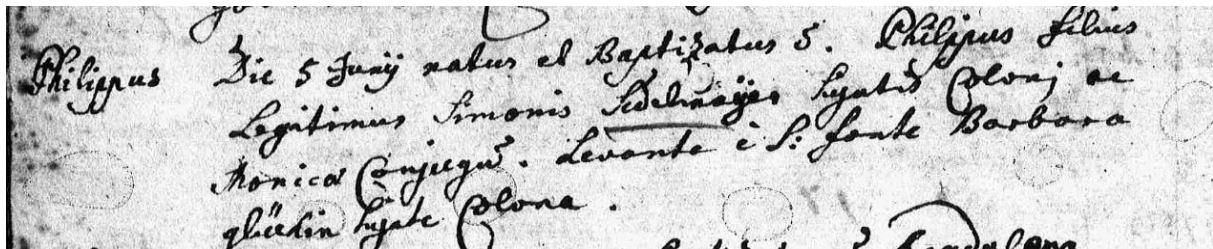 Philippus Die 5 Junij natus et Baptizatus ē. Philippus filius
Legitimus Simonis Sedelmayer hujatis Coloni ac
Monica Conjugū. Levante è S: fonte Barbara
glückin hujate Colona.